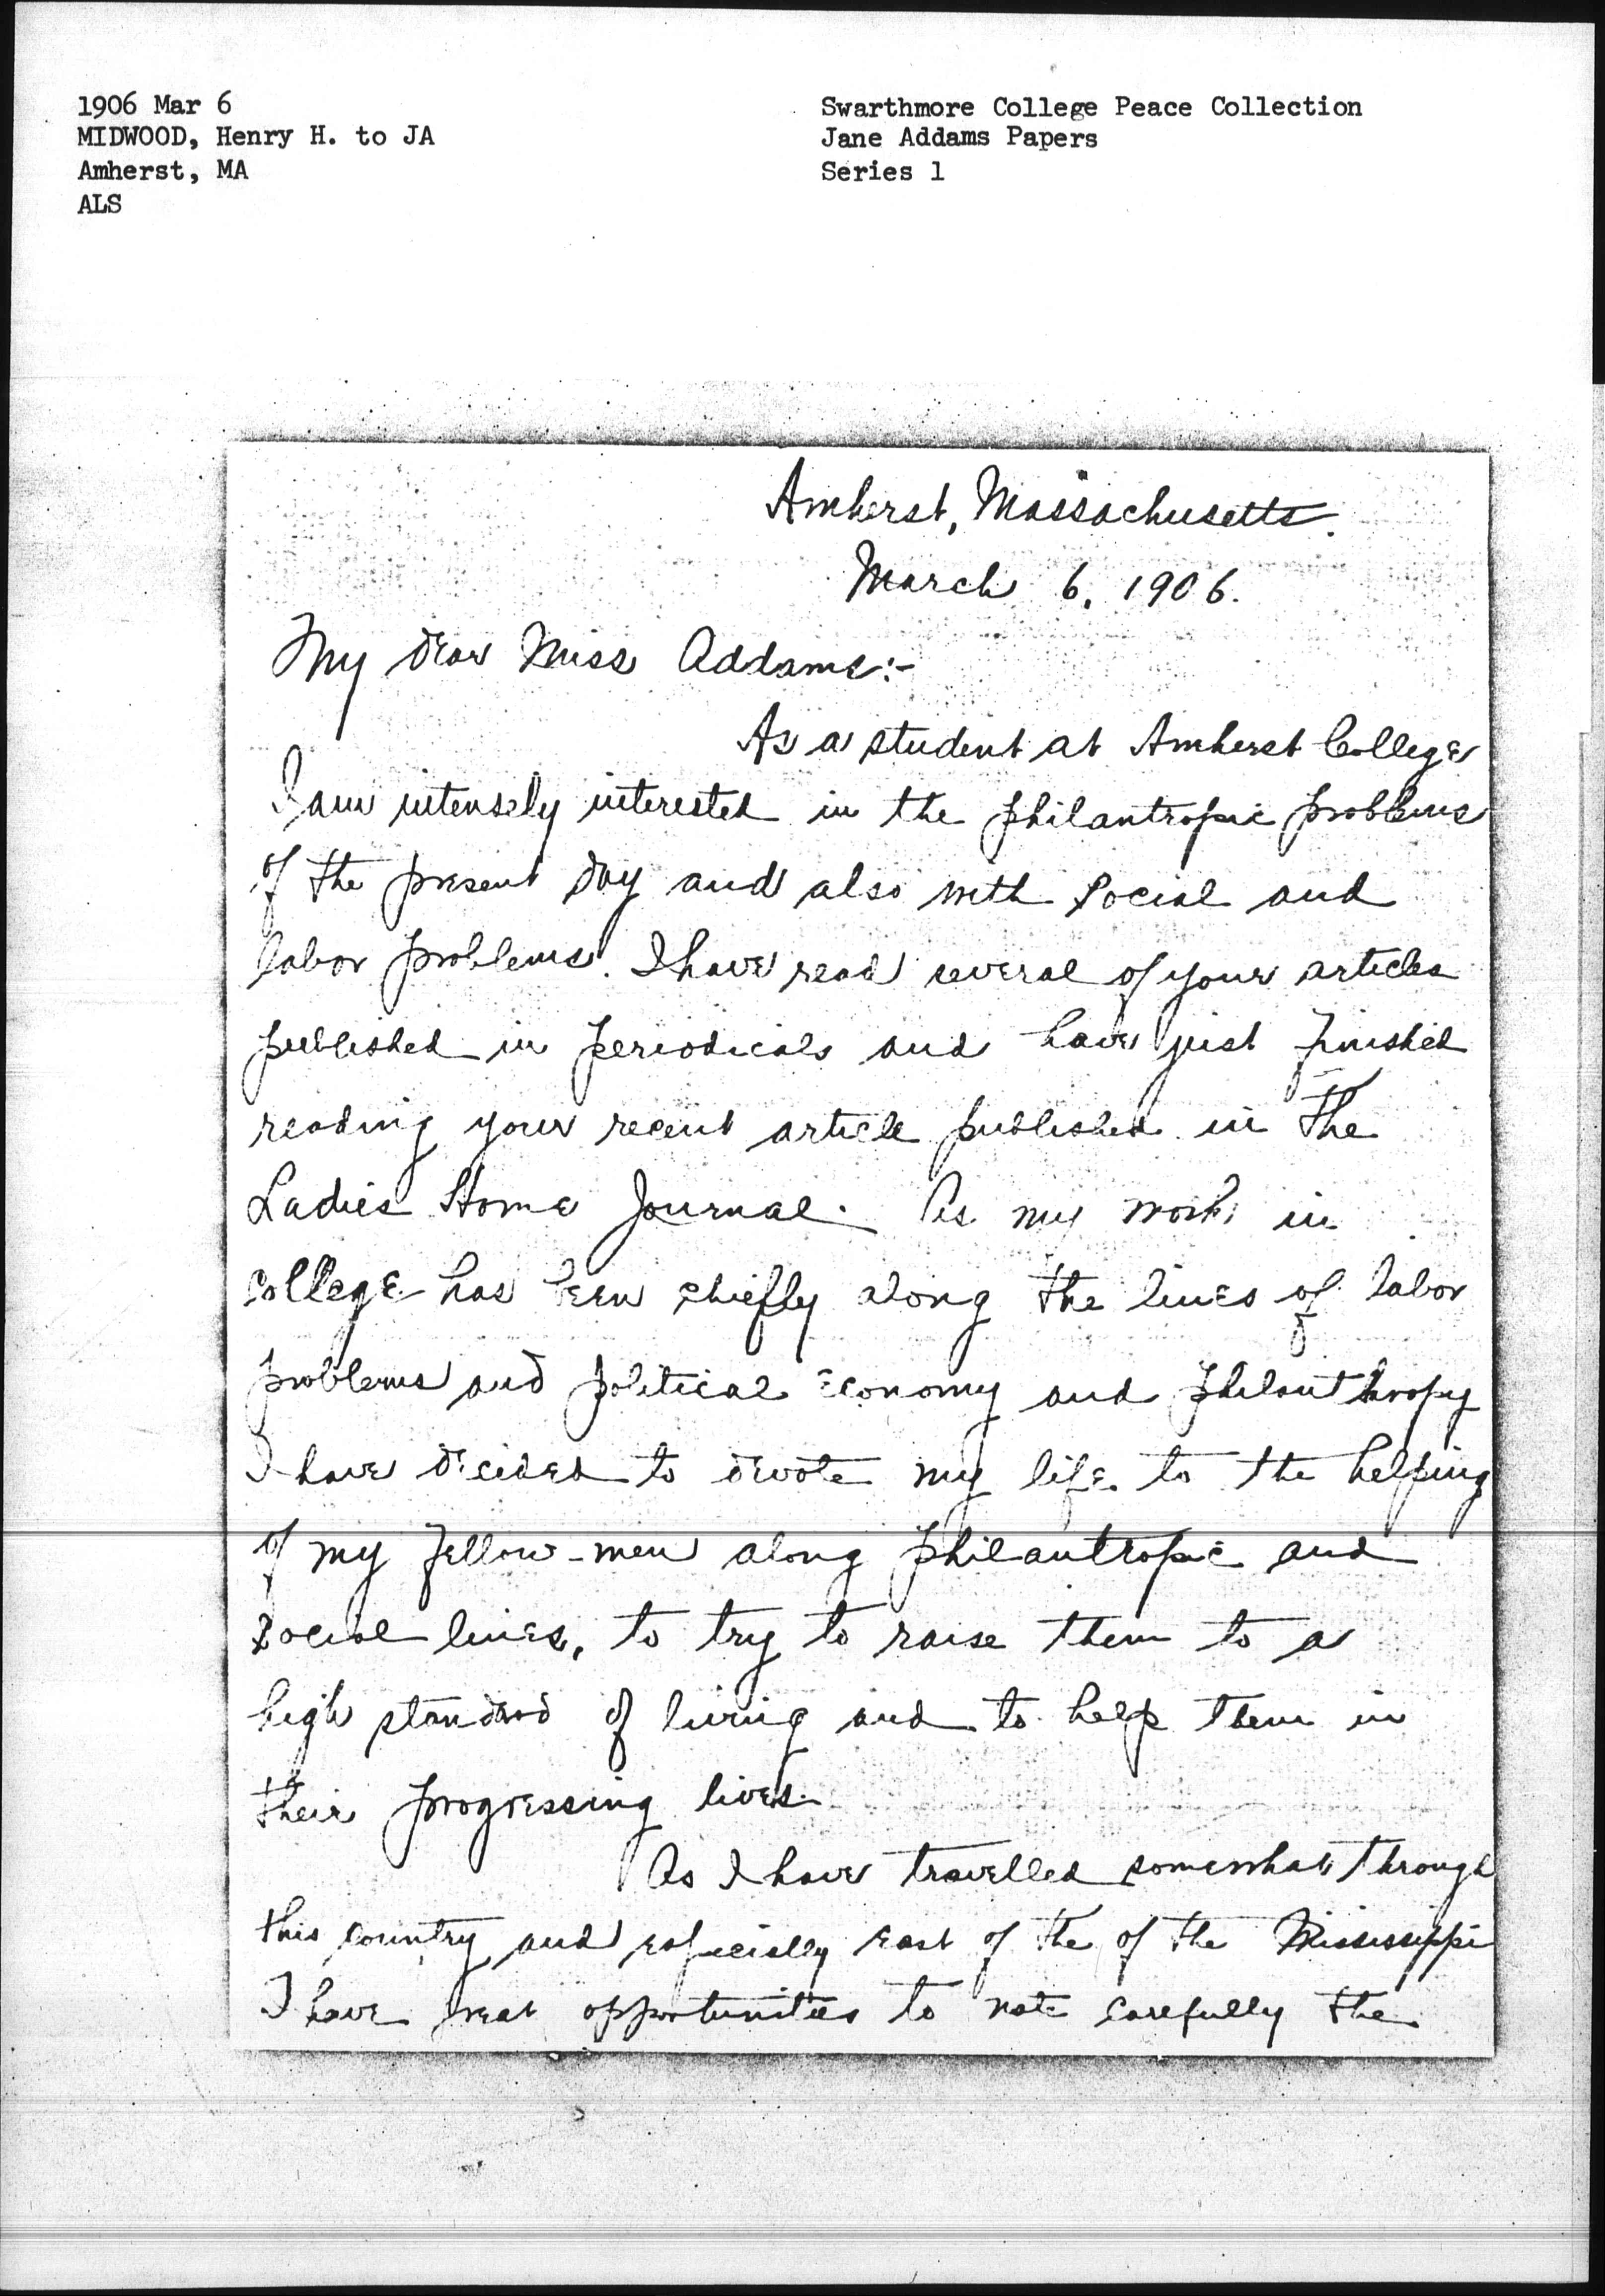 1906 Mar 6
MIDWOOD, Henry H. to JA
Amherst, MA
ALS
Swarthmore College Peace Collection
Jane Addams Papers
Series 1
Amherst, Massachusetts.
March 6, 1906.
My dear Miss Addams:-
As a student at Amherst College
I am intensely interested in the philantropic problems
of the present day and also with social and
labor problems. I have read several of your articles
published in periodicals and have just finished
reading your recent article published in the
Ladies Home Journal. As my work in
college has been chiefly along the lines of labor
problems and political economy and philanthropy
I have decided to devote my life to the helping
of my fellow-men along philantropic and
social lines, to try to raise them to a
high standard of living and to help them in
their progressing lives.
As I have travelled somewhat through
this country and especially east of the of the Mississippi
I have great opportunities to note carefully the